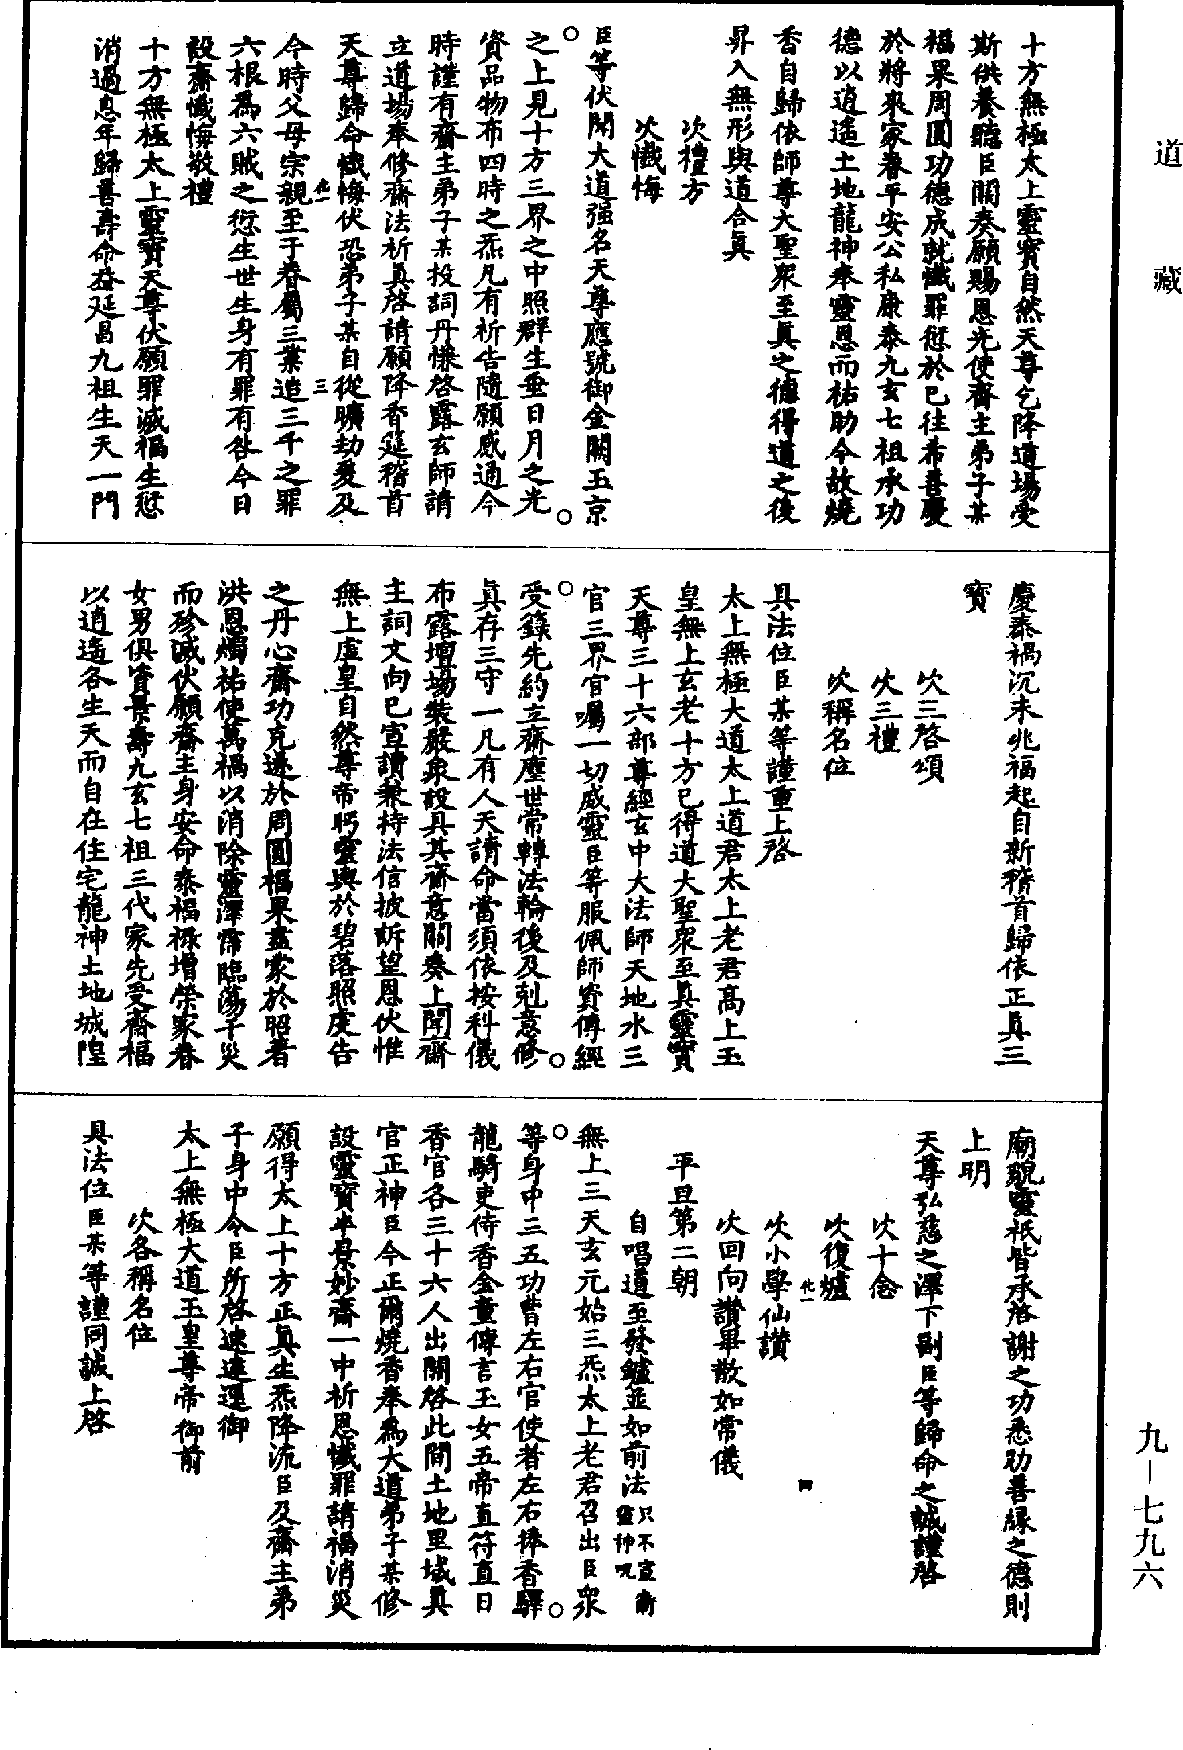 道藏
十方無極太上靈寳自然天尊乞降道場受
斯供養聽臣關奏願賜恩光使齋主弟子某
福果周圓功德成就懺罪愆於已往希善慶
於將來家眷平安公私康泰九玄七祖承功
德以逍遙土地龍神奉靈恩而祐助今故燒
香自歸依師尊大聖衆至眞之德得道之後
昇入無形與道合眞
次禮方
次懺悔
臣等伏聞大道强名天尊應號御金闕玉京
之上見十方三界之中照群生垂日月之光
資品物布四時之炁凡有祈告隨願感通今
時謹有齋主弟子某投詞丹悃啓露玄師請
立道場奉修齋法祈眞啓請願降香筵稽首
天尊歸命懺悔伏恐弟子某自從曠劫爰及
今時父母宗親至于眷屬三業造三千之罪
六根爲六賊之愆生世生身有罪有咎今日
設齋懺悔敬禮
十方無極太上靈寳天尊伏願罪滅福生愆
消過息年歸善壽命益延昌九祖生天一門
慶泰禍沉未兆福起自新稽首歸依正眞三
寳
次三啓頌
次三禮
次稱名位
具法位臣某等謹重上啓
太上無極大道太上道君太上老君高上玉
皇無上玄老十方已得道大聖衆至眞靈寳
天尊三十六部尊經玄中大法師天地水三
官三界官屬一切威靈臣等服佩師資傳經
受籙先約立齋塵世常轉法輪後及剋意修
眞存三守一凡有人天請命當須依按科儀
布露壇場裝嚴衆設具其齋意關奏上聞齋
主詞文向已宣讀兼持法信披訴望恩伏惟
無上虛皇自然尊帝眄靈輿於碧落照虔告
之丹心齋功克遂於周圓福果盡蒙於昭著
洪恩燭祐使萬禍以消除靈澤霈臨蕩千災
而殄滅伏願齋主身安命泰福祿增榮家眷
女男俱資景壽九玄七祖三代家先受齋福
以逍遙各生天而自在住宅龍神土地城隍
廟貌靈祇皆承洛謝之功悉助善緣之德則
上明
天尊弘慈之澤下副臣等歸命之誠謹啓
次十念
次復爐
次小學仙讚
次回向讚畢散如常儀
平旦第二朝
自唱道至發鑪並如前法只不宣衞靈神呪
無上三天玄元始三炁太上老君召出臣衆
等身中三五功曹左右官使者左右捧香驛
龍騎吏侍香金童傳言玉女五帝直符直日
香官各三十六人出關啓此間土地里域眞
官正神臣今正爾燒香奉爲大道弟子某修
設靈寳半景妙齋一中祈恩懺罪請福消災
願得太上十方正眞生炁降流臣及齋主弟
子身中令臣所啓速達逕御
太上無極大道玉皇尊帝御前
次各稱名位
具法位臣某等謹同誠上啓
九－七九六